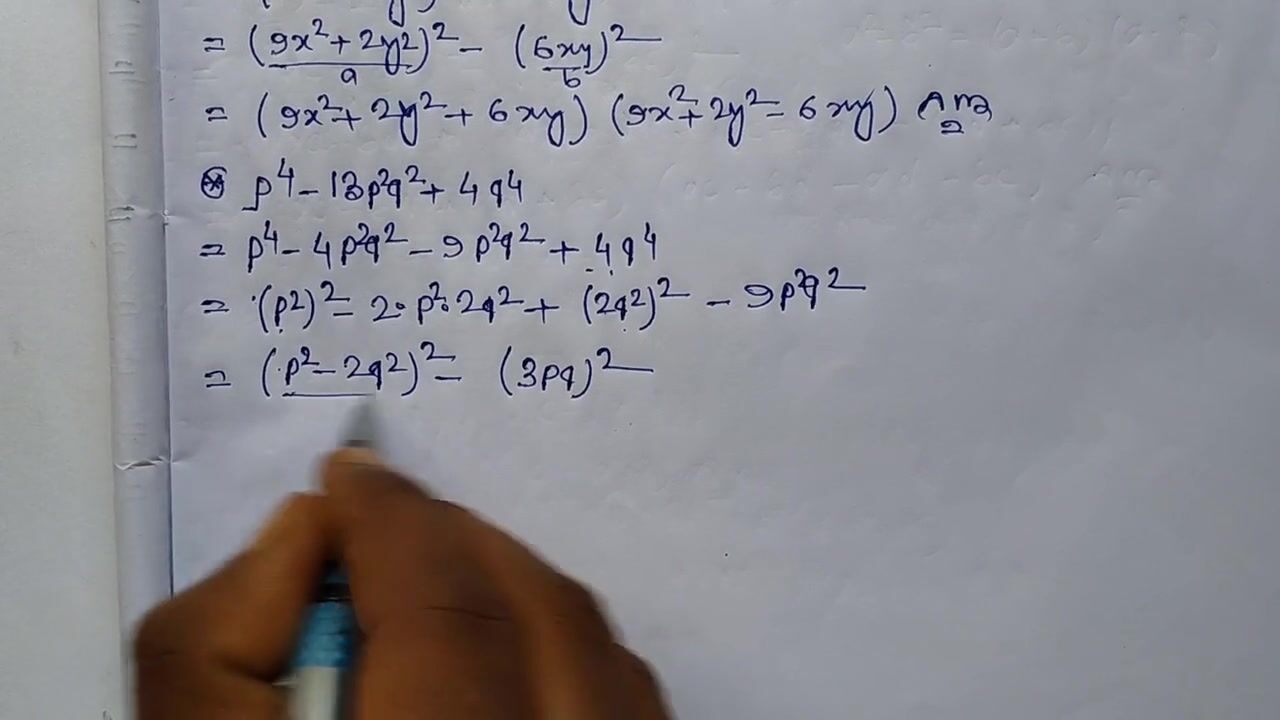 = (9x² + 2y²)² - (6xy)²
a b
= (9x² + 2y² + 6xy) (9x² + 2y² - 6xy) Ans
⊛ p⁴ - 13p²q² + 4q⁴
= p⁴ - 4p²q² - 9p²q² + 4q⁴
= (p²)² - 2·p²·2q² + (2q²)² - 9p²q²
= (p² - 2q²)² - (3pq)²